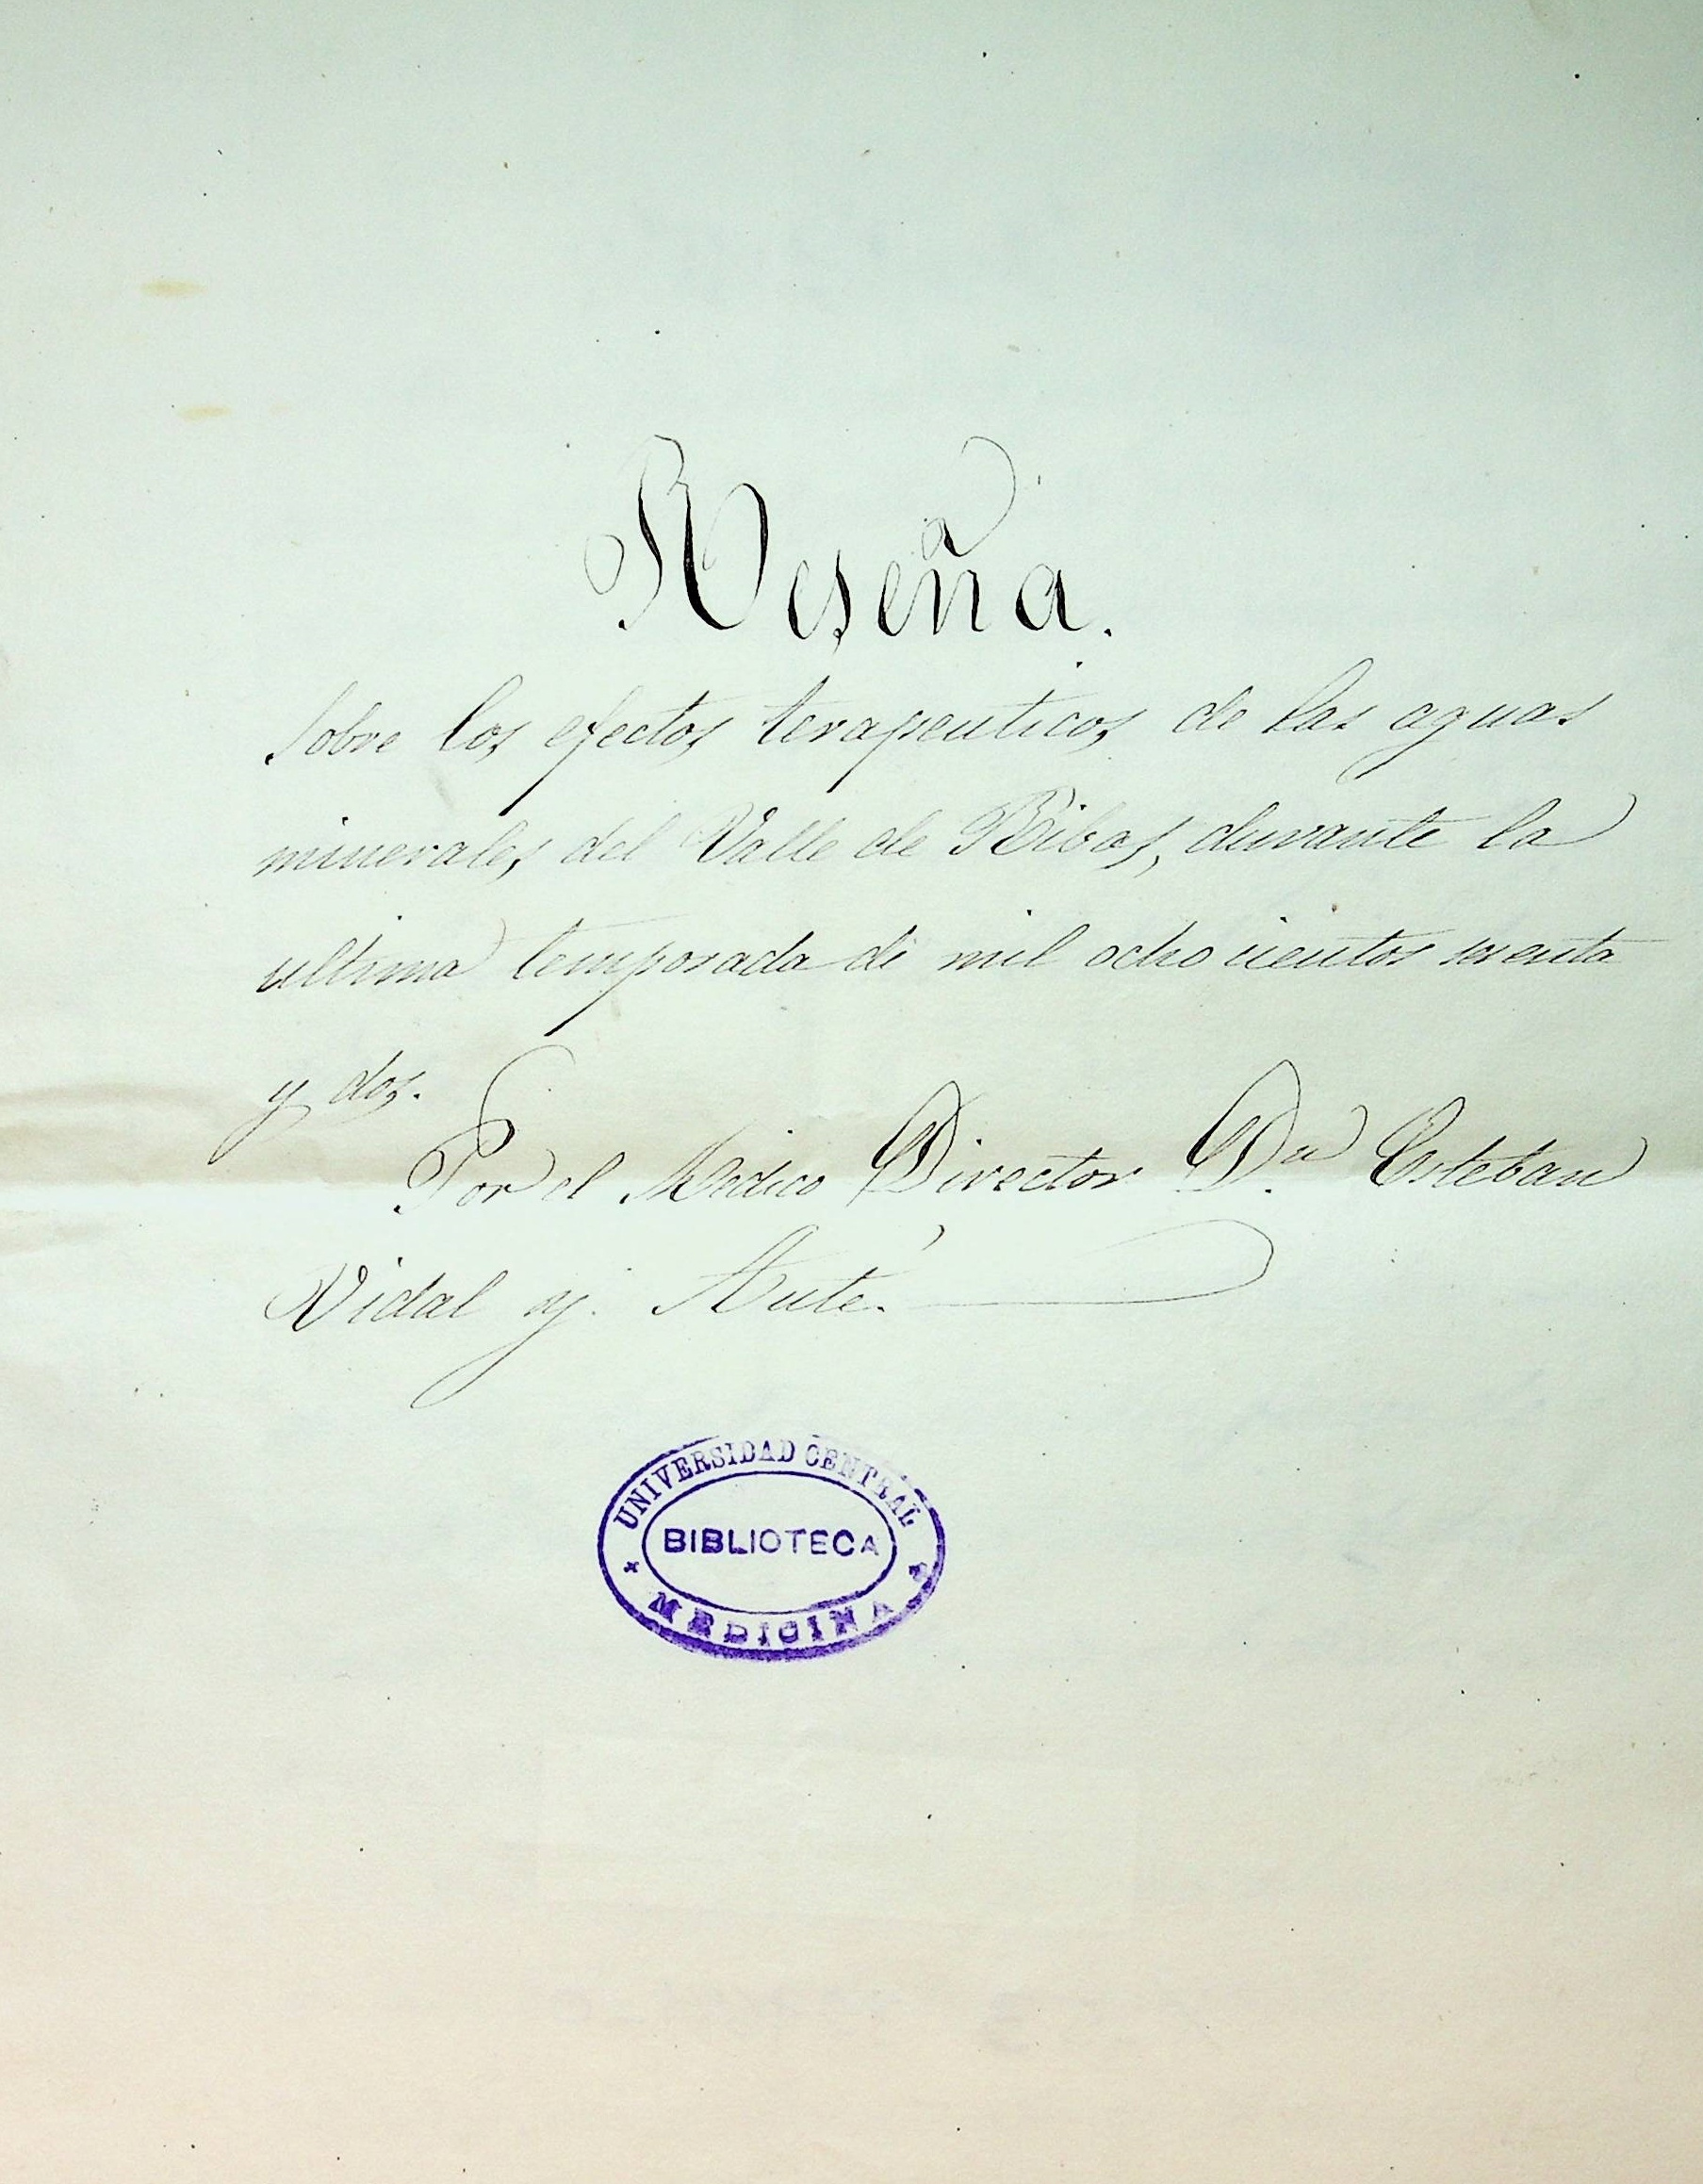 Reseña.
Sobre los efectos terapeuticos de las aguas
minerales, del Valle de Ribas, durante la
ultima temporada de mil ochocientos sesenta
y dos.
Por el Medico Director Dn Esteban
Vidal y
UNIVERSIDAD CENTRAL
BIBLIOTECA
MEDICINA